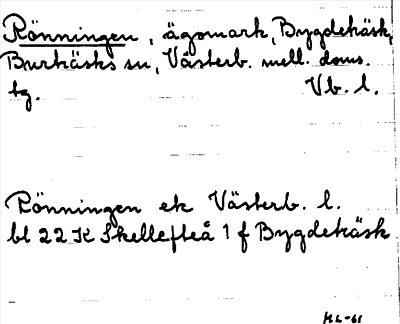 Rönningen, ägomark, Bygdeträsk,
Burträsks sn, Västerb. mell. doms.
tg. Vb. l.
Rönningen ek Västerb. l.
bl 22 K Skellefteå 1 f Bygdeträsk
ML-61